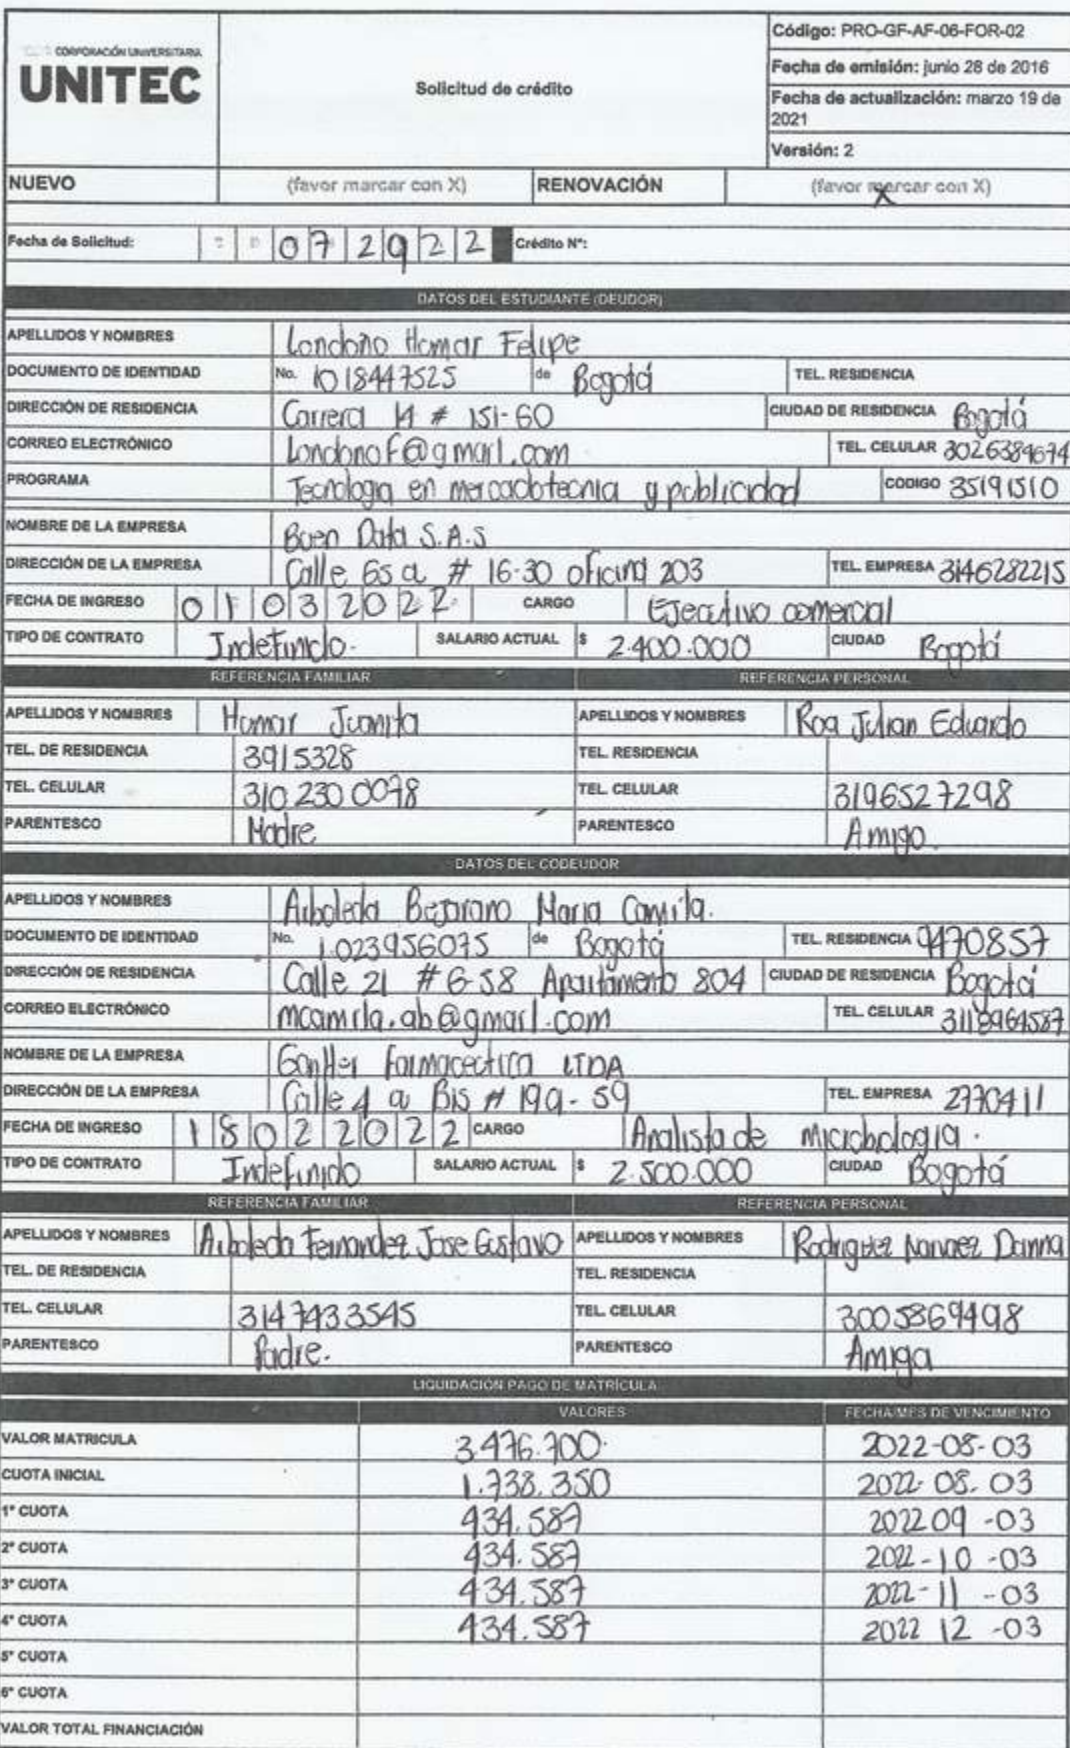 CORPORACIÓN UNIVERSITARIA
UNITEC
Solicitud de crédito
Código: PRO-GF-AF-06-FOR-02
Fecha de emisión: junio 28 de 2016
Fecha de actualización: marzo 19 de 2021
Versión: 2
NUEVO (favor marcar con X) RENOVACIÓN (favor marcar con X) X
Fecha de Solicitud: 07 29 22 Crédito N°:
DATOS DEL ESTUDIANTE (DEUDOR)
APELLIDOS Y NOMBRES Londoño Homar Felipe
DOCUMENTO DE IDENTIDAD No. 1018447525 de Bogotá TEL. RESIDENCIA
DIRECCIÓN DE RESIDENCIA Carrera 14 # 151-60 CIUDAD DE RESIDENCIA Bogotá
CORREO ELECTRÓNICO londonof@gmail.com TEL. CELULAR 3026384674
PROGRAMA Tecnologia en mercadotecnia y publicidad CODIGO 35191510
NOMBRE DE LA EMPRESA Buen Data S.A.S
DIRECCIÓN DE LA EMPRESA Calle 65 a # 16-30 oficina 203 TEL. EMPRESA 3146282215
FECHA DE INGRESO 01032022 CARGO Ejecutivo comercial
TIPO DE CONTRATO Indefinido. SALARIO ACTUAL $ 2.400.000 CIUDAD Bogotá
REFERENCIA FAMILIAR REFERENCIA PERSONAL
APELLIDOS Y NOMBRES Homar Juanita APELLIDOS Y NOMBRES Roa Julian Eduardo
TEL. DE RESIDENCIA 3915328 TEL. RESIDENCIA
TEL. CELULAR 310 230 0078 TEL. CELULAR 3196527298
PARENTESCO Madre PARENTESCO Amigo.
DATOS DEL CODEUDOR
APELLIDOS Y NOMBRES Arboleda Bejarano Maria Camila.
DOCUMENTO DE IDENTIDAD No. 1.023956075 de Bogotá TEL. RESIDENCIA 9470857
DIRECCIÓN DE RESIDENCIA Calle 21 # 6-58 Apartamento 804 CIUDAD DE RESIDENCIA Bogotá
CORREO ELECTRÓNICO mcamila.ab@gmail.com TEL. CELULAR 3118964587
NOMBRE DE LA EMPRESA LTDA
DIRECCIÓN DE LA EMPRESA Calle 4 a Bis # 19a-59 TEL. EMPRESA 2770411
FECHA DE INGRESO 18022022 CARGO Analista de Microbologia.
TIPO DE CONTRATO Indefinido SALARIO ACTUAL $ 2.500.000 CIUDAD Bogotá
REFERENCIA FAMILIAR REFERENCIA PERSONAL
APELLIDOS Y NOMBRES Arboleda Fernandez Jose Gustavo APELLIDOS Y NOMBRES Rodriguez Danna
TEL. DE RESIDENCIA TEL. RESIDENCIA
TEL. CELULAR 3147433545 TEL. CELULAR 3005869498
PARENTESCO Padre. PARENTESCO Amiga
LIQUIDACIÓN PAGO DE MATRÍCULA
VALORES FECHA/MES DE VENCIMIENTO
VALOR MATRICULA 3.476.700. 2022-08-03
CUOTA INICIAL 1.738.350 2022-08.03
1ª CUOTA 434.587 2022 09 -03
2ª CUOTA 434.587 2022-10-03
3ª CUOTA 434.587 2022-11-03
4ª CUOTA 434.587 2022 12 -03
5ª CUOTA
6ª CUOTA
VALOR TOTAL FINANCIACIÓN